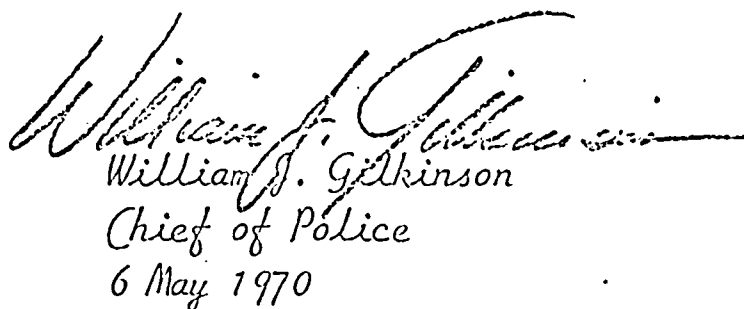 William J. Gilkinson
William J. Gilkinson
Chief of Police
6 May 1970